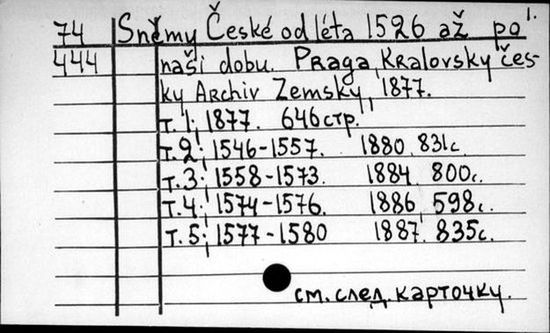 1.
74 Sněmy České od léta 1526 až po
444 naši dobu. Praga, Kralovsky čes-
ky Archiv Zemsky, 1877.
т. 1; 1877. 646 стр.
т. 2; 1546-1557. 1880. 831с.
т. 3; 1558-1573. 1884. 800с.
т. 4; 1574-1576. 1886. 598с.
т. 5; 1577-1580 1887. 835с.
см. след. карточку.